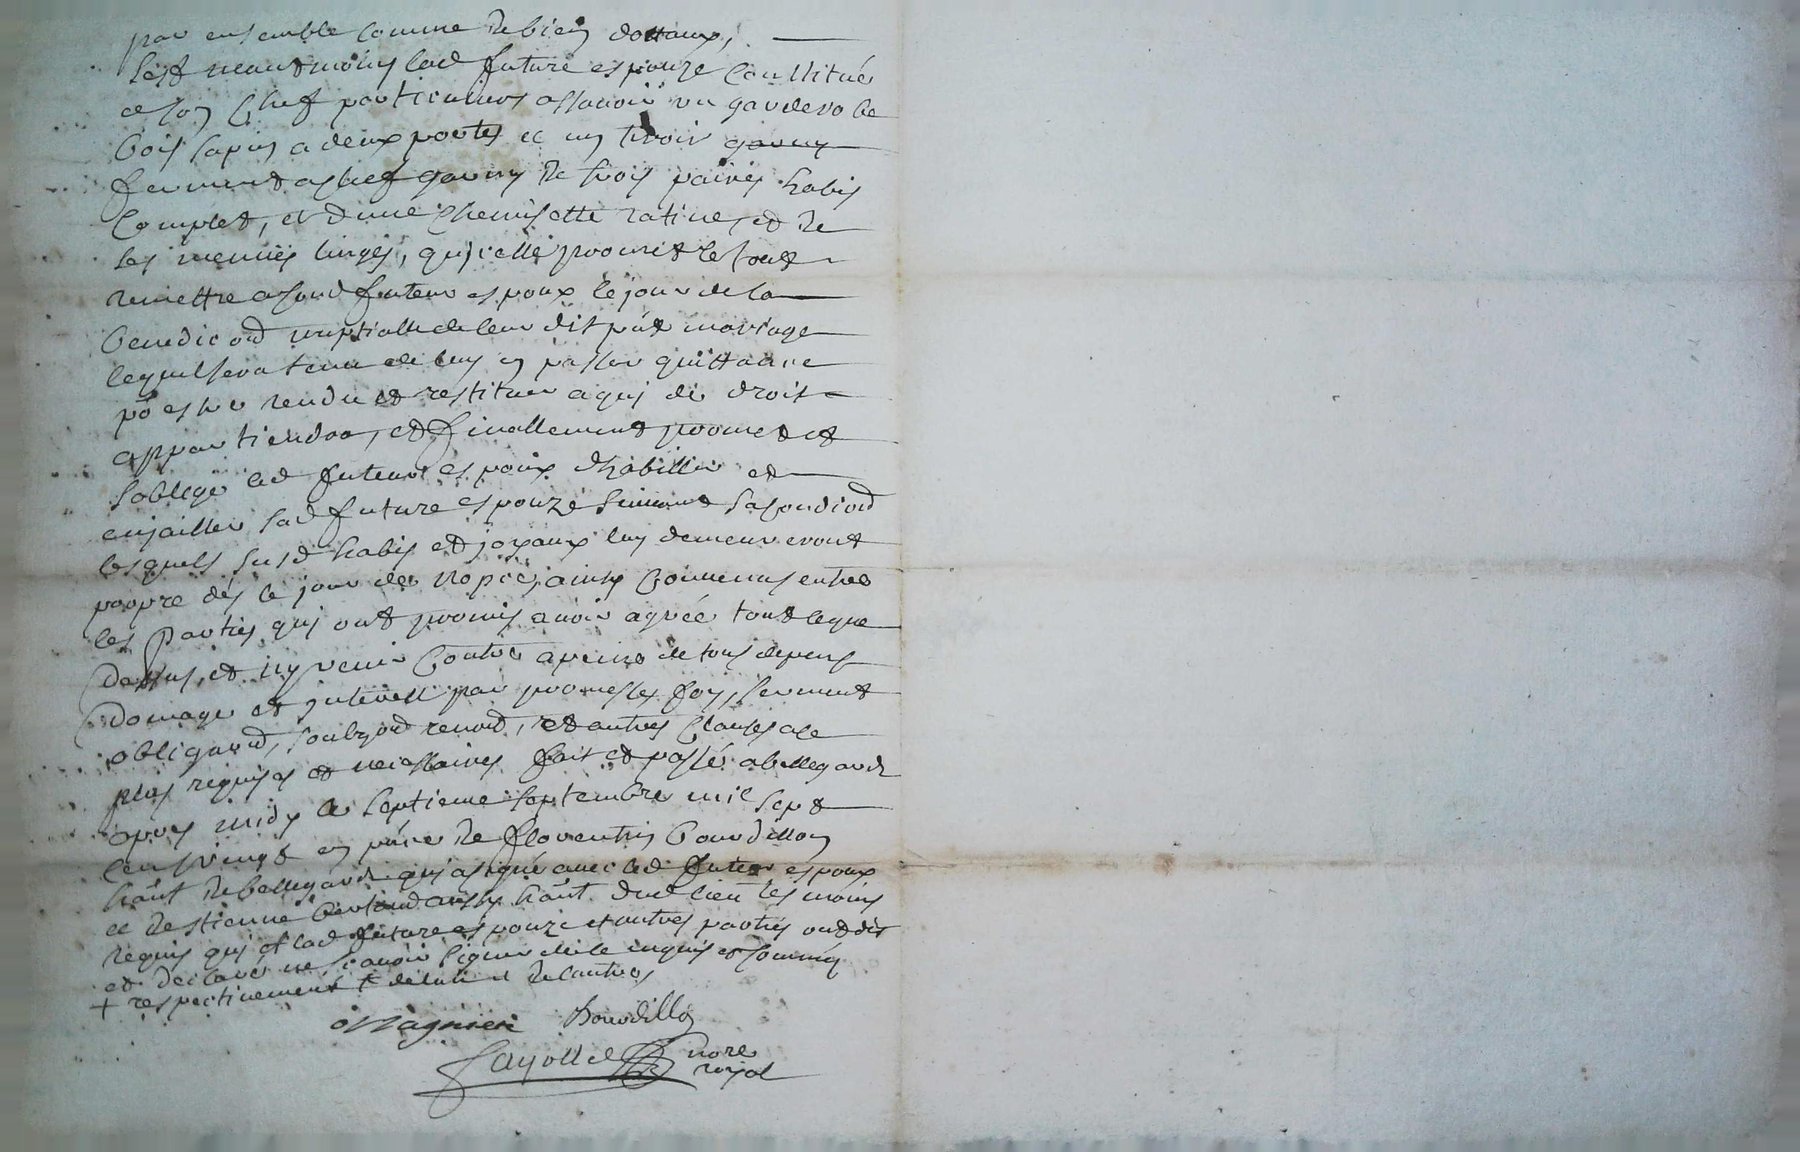 par ensemble comme de bien dottaux,
s'est neantmoins lad future espouze constituée
de son chef particulier assavoir un garderobe
bois sapin a deux portes et un tiroir garny
fermant a clef garny de trois paires habis
complet, et d'une chemisette ratine, et de
ses menues linges, qu'icelle promet le tout
remettre a sond futeur espoux le jour de la
benediction nuptialle de leur dit pnt mariage
lequel sera tenu de luy en passer quittance
po estre rendu et restituer a qui de droit
appartiendra, et finallement promet et
s'oblige led futeur espoux d'habiller et
enjailler sad future espouze suivant sa condiond
lesquels susd habis et joyaux luy demeureront
propre dés le jour des nopce, ainsy convenus entre
les parties qui ont promis avoir agréé tout leque
dessus, et n'y venir contre a peine de tous depens
domage et interest par promesse foy, serment
obligaond, soubzond renond, et autres clauses a ce
plus requises et necessaires fait et passé a bellegarde
apres midy le septieme septembre mil sept
cens vingt en pnce de florentin Bourdillon
hãnt de bellegarde qui a signé avec led futeur espoux
et d'estienne aussy hãnt dud lieu tesmoins
requis qui et lad future espouze et autres parties ont dit
et declaré ne scavoir signer de ce enquis et sommés
+ respectivement +
Magnien Bourdillon
Fayolle nore
royal